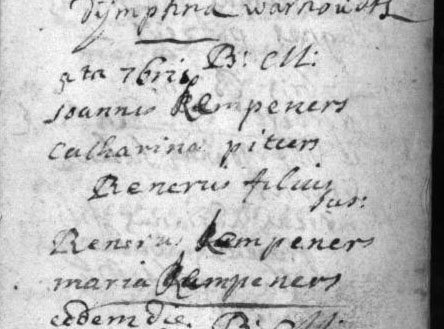 Dÿmphna
B: M:
5ta 7bris
Joannis Kempeners
Catharina piters
Renerus filius
sus:
Renerus Kempeners
maria Kempeners
eodem die B: M: